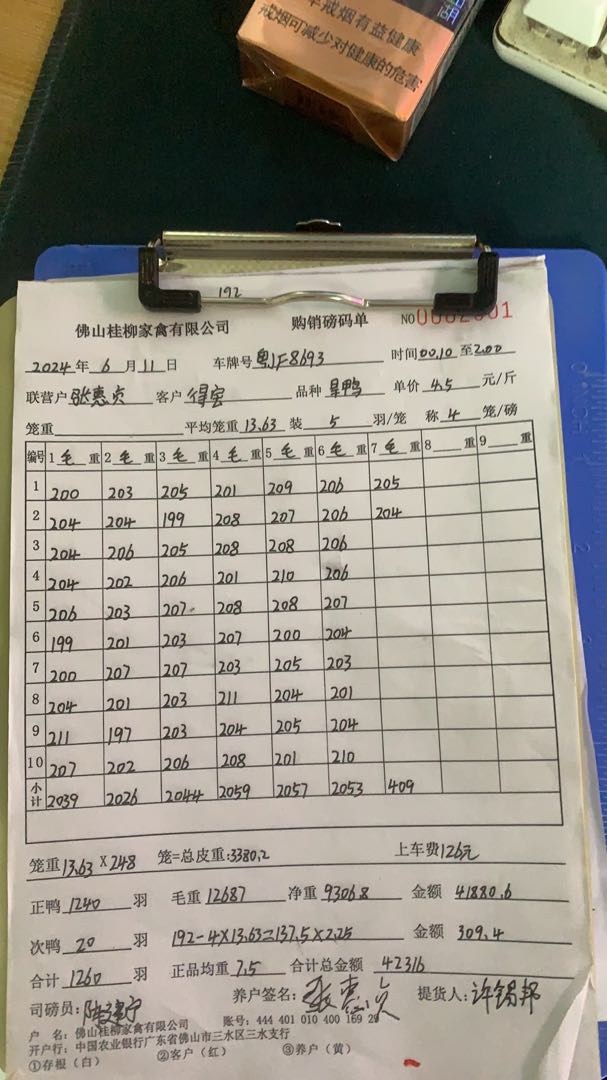 戒烟有益健康
戒烟可减少对健康的危害
192
佛山桂柳家禽有限公司 购销磅码单 NO
2024 年 6 月 11 日 车牌号 粤JF8693 时间 00.10 至 2.00
联营户 张惠贞 客户 得宏 品种 旱鸭 单价 4.5 元/斤
笼重 平均笼重 13.63 装 5 羽/笼 称 4 笼/磅
编号 1 毛 重 2 毛 重 3 毛 重 4 毛 重 5 毛 重 6 毛 重 7 毛 重 8 重 9 重
1 200 203 205 201 209 206 205
2 204 204 199 208 207 206 204
3 204 206 205 208 208 206
4 204 202 206 201 210 206
5 206 203 207 208 208 207
6 199 201 203 207 200 204
7 200 207 207 203 205 203
8 204 201 203 211 204 201
9 211 197 203 204 205 204
10 207 202 206 208 201 210
小计 2039 2026 2044 2059 2057 2053 409
笼重 13.63 x 248 笼=总皮重: 3380.2 上车费 126元
正鸭 1240 羽 毛重 12687 净重 9306.8 金额 41880.6
次鸭 20 羽 192-4×13.63=137.5×2.25 金额 309.4
合计 1260 羽 正品均重 7.5 合计总金额 42316
司磅员: 养户签名: 张惠贞 提货人: 许锡邦
户 名: 佛山桂柳家禽有限公司 账号: 444 401 010 400 169 29
开户行: 中国农业银行广东省佛山市三水区三水支行
①存根(白) ②客户(红) ③养户(黄)